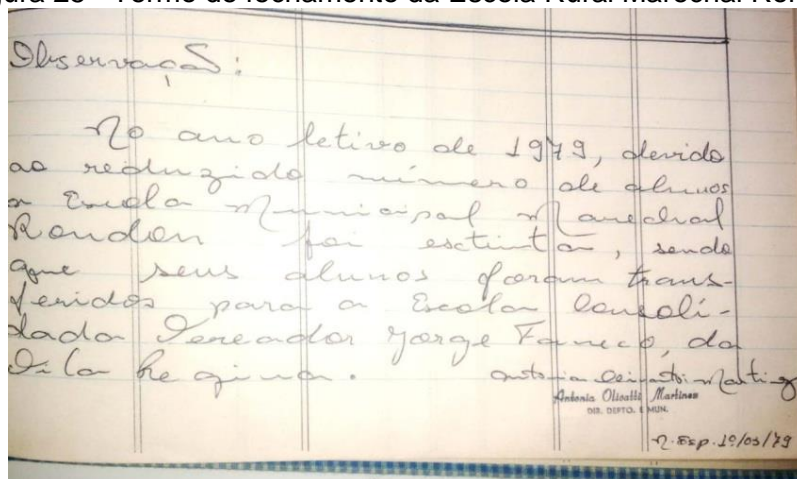 Observação:
No ano letivo de 1979, devido
ao reduzido número de alunos
a Escola Municipal Marechal
Rondon foi esctinta, sendo
que seus alunos foram trans-
feridos para a Escola Consoli-
dada Vereador Jorge Faneco, da
Vila Regina.
Antonia Olivatti Martinez
DIR. DEPTO. E MUN.
N. Esp. 10/03/79